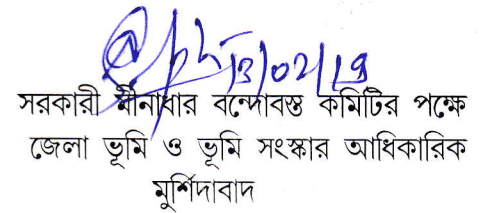 13/02/19
সরকারী মীনাধার বন্দোবস্ত কমিটির পক্ষে
জেলা ভূমি ও ভূমি সংস্কার আধিকারিক
মুর্শিদাবাদ